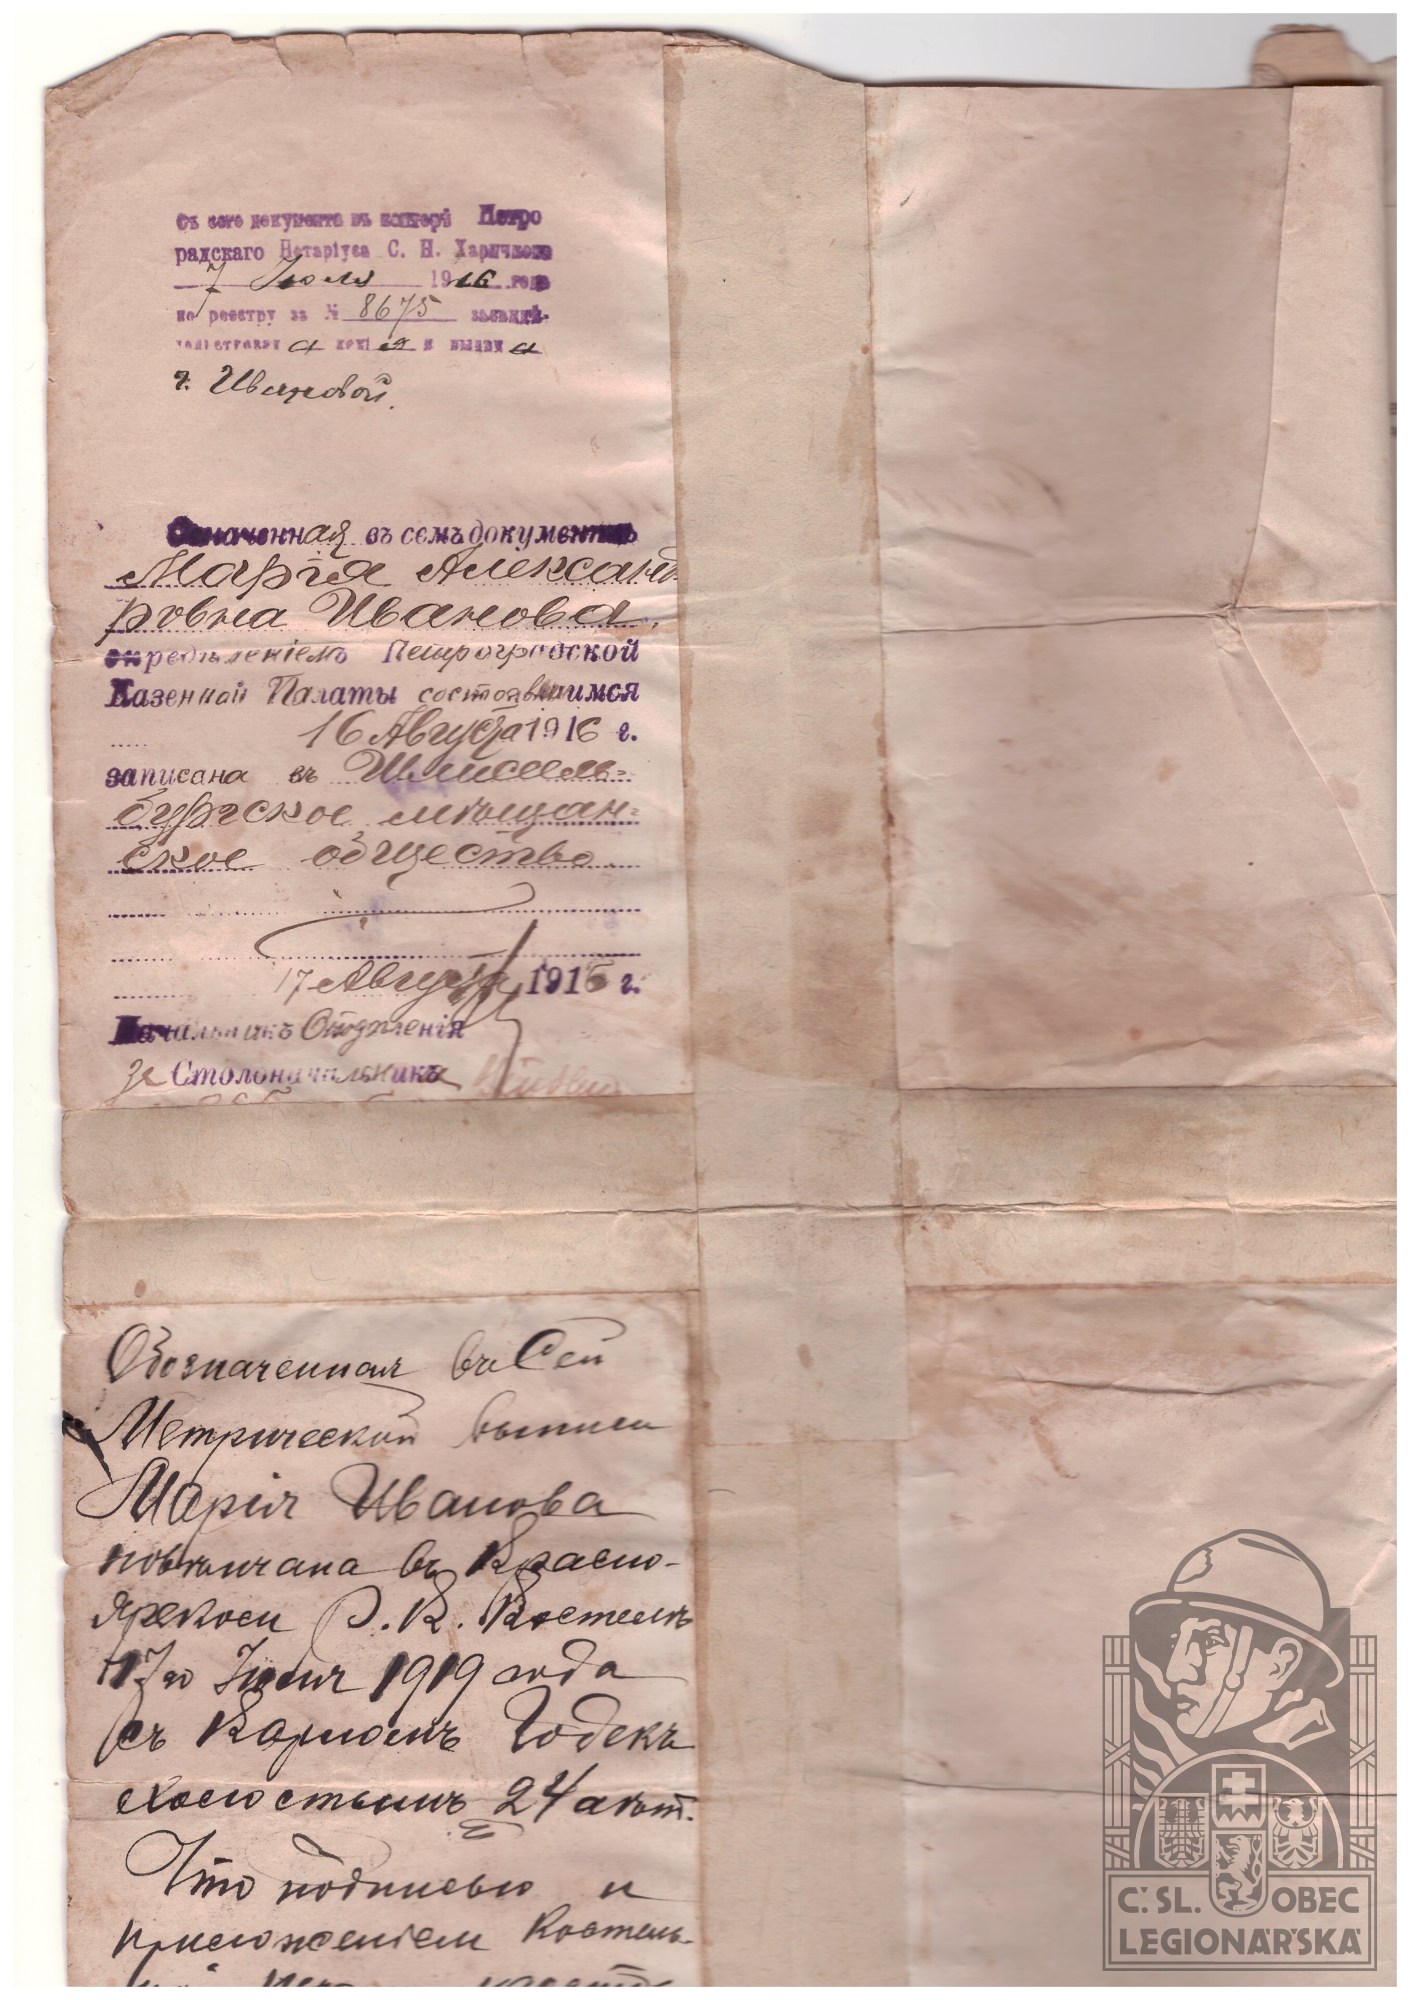 Съ сего документа въ конторѣ Петро
радскаго Нотаріуса С. Н. Харичкова
7 Іюля 1916 года
по реестру за № 8675 засвидѣ-
тельствована копія и выдана
г. Ивановой.
Означенная въ семъ документѣ
Марія Александ
ровна Иванова,
опредѣленіемъ Петроградской
Казенной Палаты состоявшимся
16 Августа 1916 г.
записана въ Шлиссель-
бургское мѣщан-
ское общество
17 Августа 1916 г.
Начальникъ Отдѣленія
За Столоначальника
Обозначенная въ Сей
Метрической выписи
Марія Иванова
повѣнчана въ Красно-
ярскомъ Р. К. Костелѣ
17го 1919 года
съ Карломъ Годекъ
холостымъ 24 лѣт.
Что подписью и
приложеніемъ Костель-
C.SL. OBEC
LEGIONÁŘSKÁ